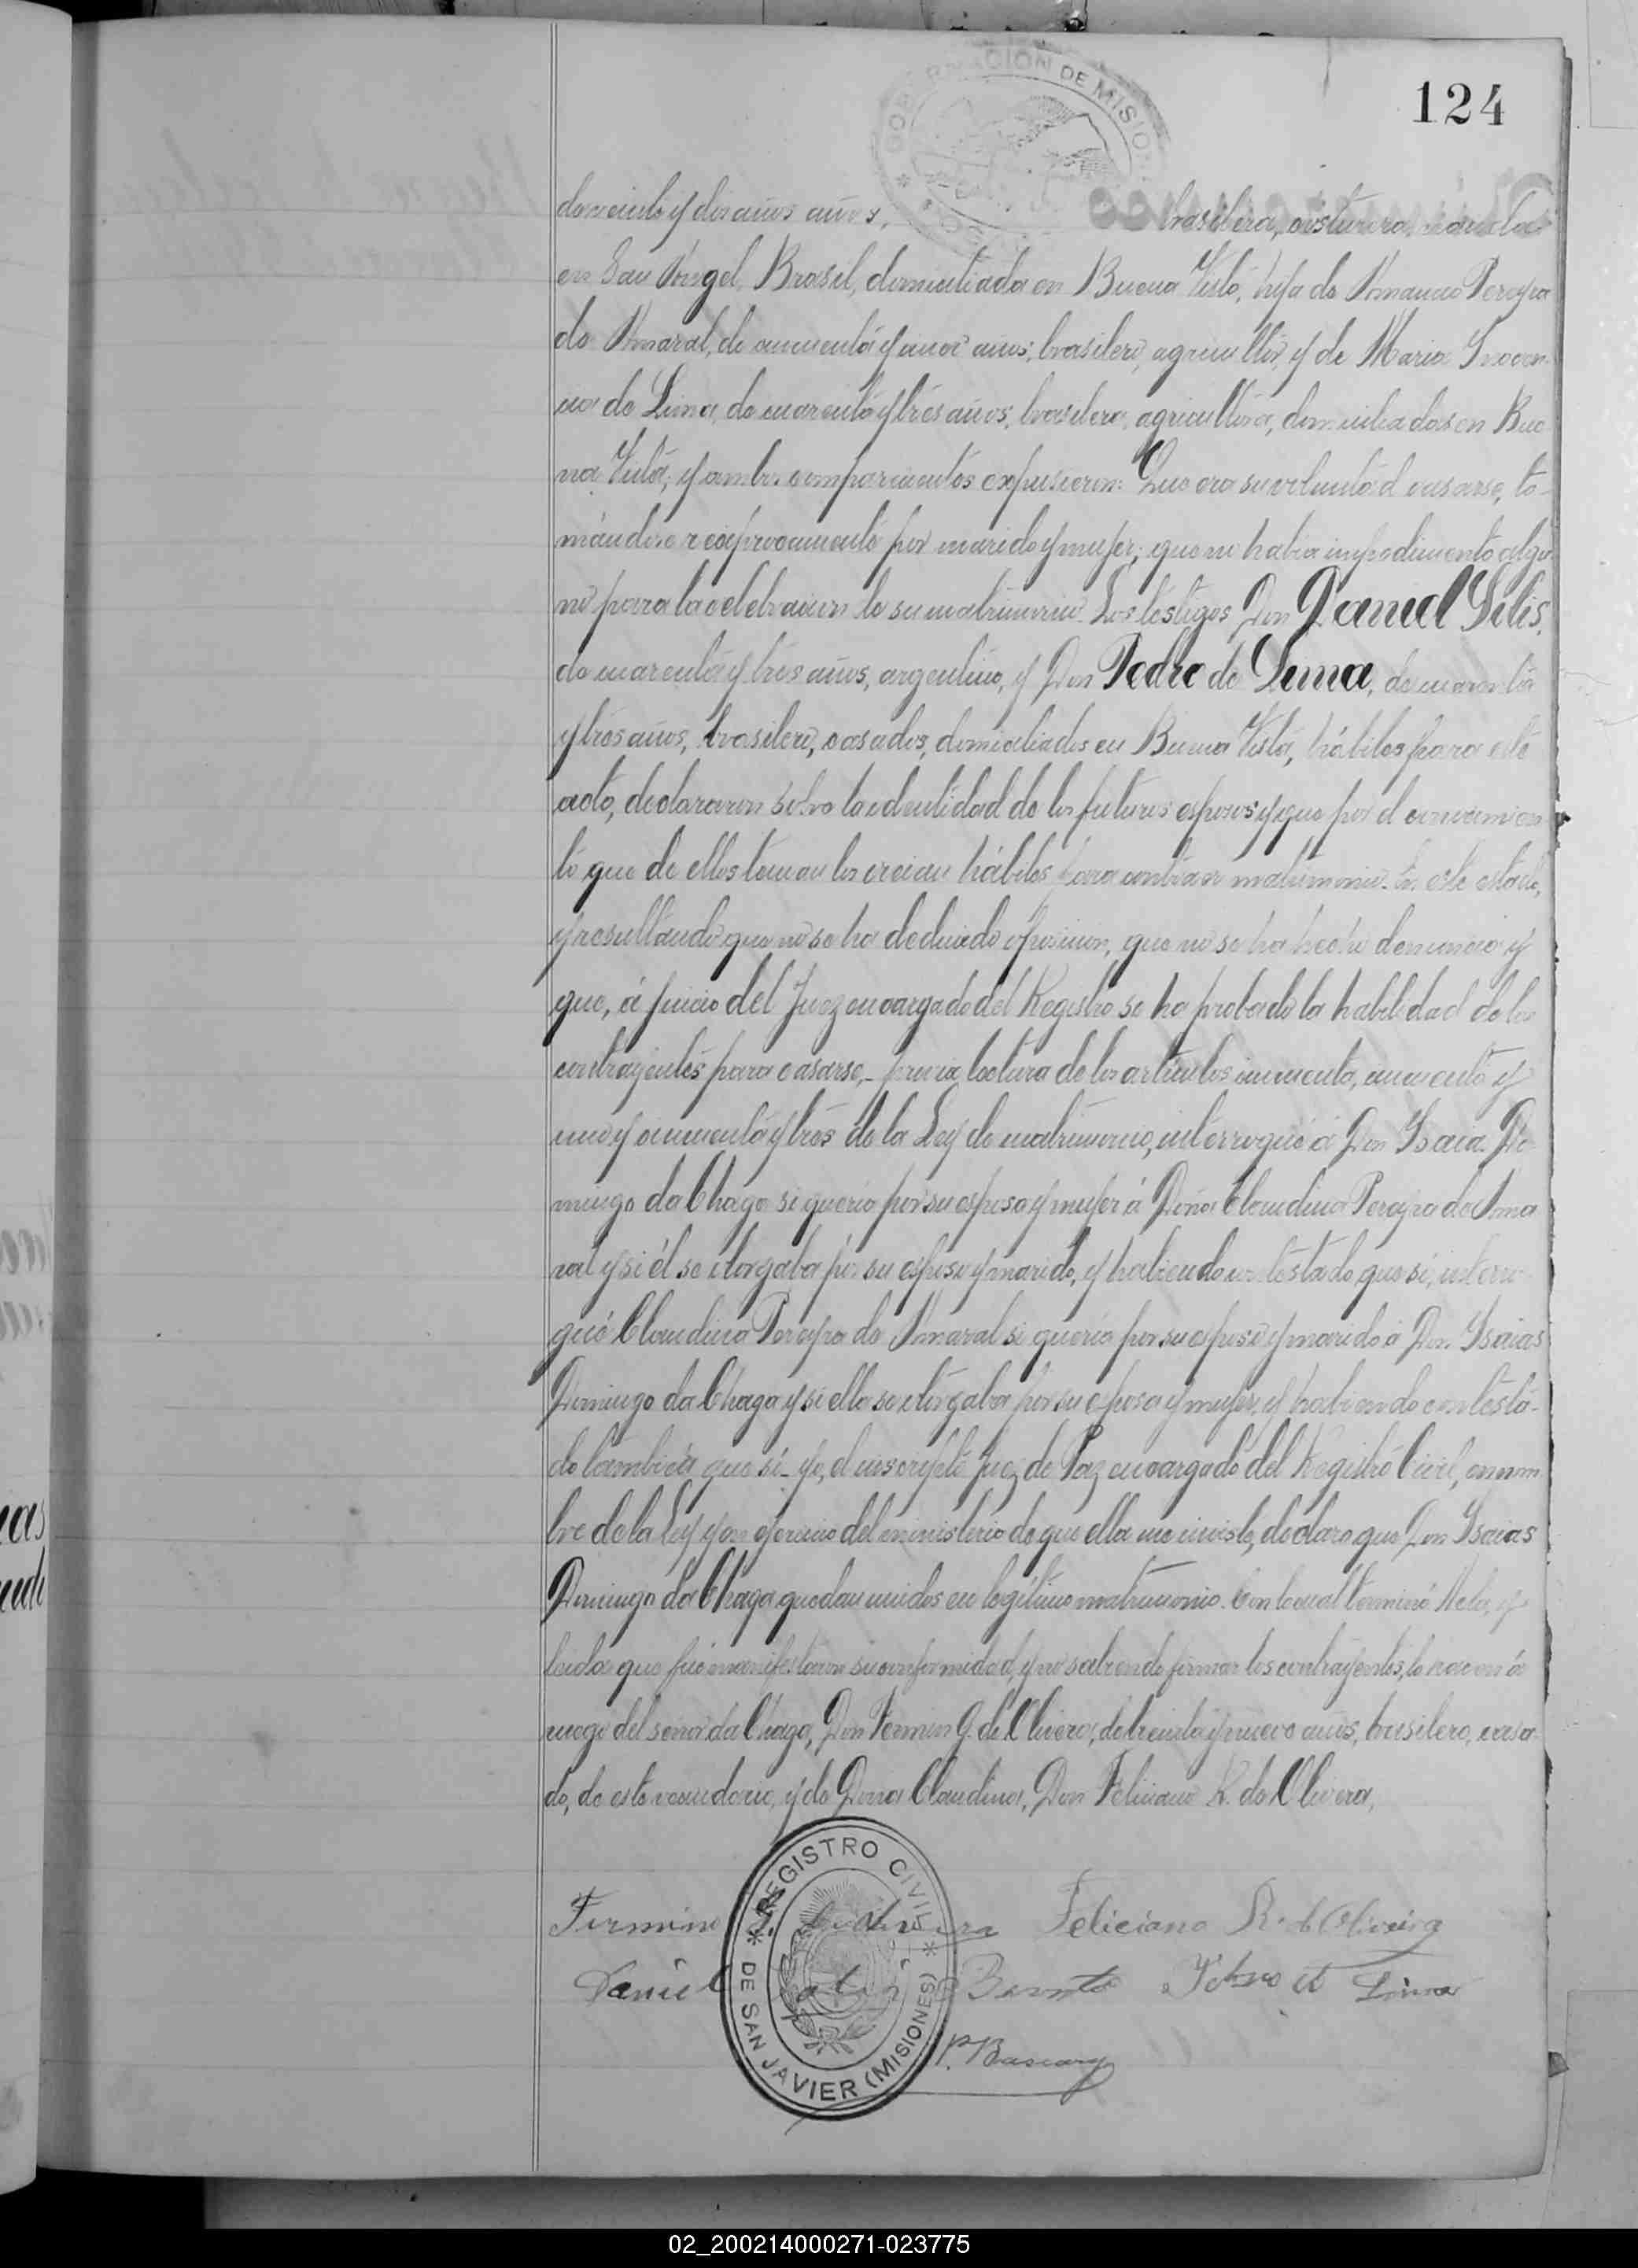 GOBERNACION DE MISION
124
de veinte y dos años años, brasilera, costurera, nacida
en San Angel, Brasil, domiciliada en Buena Vista, hija de Amancio Pereyra
do Amaral, de cincuenta y años; brasilero, agricultor, y de Maria Inocen-
cia de Lima, de cuarenta y trés años, brasilera, agricultora, domiciliados en Bue
na Vista; y ambos comparecientes expusieron: Que era su voluntad casarse, to-
mándose reciprocamente por marido y mujer; que no habia impedimento algu-
no para la celebracion de su matrimonio. Los testigos Don Daniel
de cuarenta y trés años, argentino, y Don Pedro de Lima, de cuarenta
y trés años, brasilero, casados, domiciliados en Buena Vista, hábiles para este
acto, declararon sobre la identidad de los futuros esposos y que por el conocimien
to que de ellos tenian los creian hábiles para contraer matrimonio. En este estado,
y resultando que no se ha deducido oposicion, que no se ha hecho denuncia y
que, á juicio del Juez encargado del Registro se ha probado la habilidad de los
contrayentes para casarse,- previa lectura de los articulos cincuenta, cincuenta y
uno y cincuenta y trés de la Ley de matrimonio, interrogué á Don Isaias Do-
mingo da Chaga si queria por su esposa y mujer á Doña Claudina Pereyra do Ama
ral y si él se otorgaba por su esposo y marido, y habiendo contestado que si, interro-
gué Claudina Pereyra do Amaral si queria por su esposo y marido á Don Isaias
Domingo da Chaga y si ella se otorgaba por su esposa y mujer, y habiendo contesta-
do tambien que si- yo, el inscripto Juez de Paz encargado del Registro Civil, en nom-
bre de la Ley y en ejercicio del ministerio de que ella me inviste, declaro que Don Isaias
Domingo da Chaga quedan unidos en legitimo matrimonio. Con lo cual terminó Acta, y
leida que fué manifestaron su conformidad, y no sabiendo firmar los contrayentes, lo hacen á
ruego del señor da Chaga, Don Fermin G. de Olivera, de treinta y nueve años, brasilero, casa-
do, de este vecindario, y de Doña Claudina, Don Feliciano R. de Olivera,
REGISTRO CIVIL
DE SAN JAVIER (MISIONES)
Firmino Feliciano R. de Oliveira
Daniel Pedro de Lima
P. Bascary
02_200214000271-023775